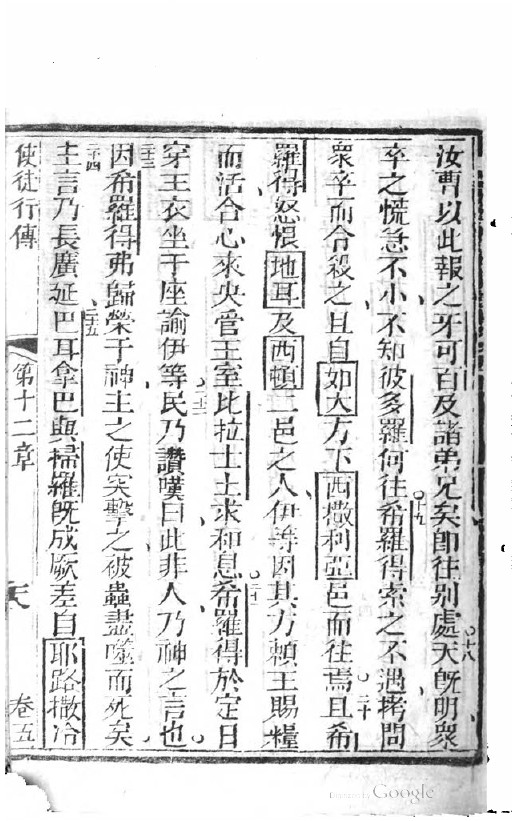 汝曹以此報之牙可百及諸弟兄矣即往別處天既明衆
十八
卒之慌急不小不知彼多羅何往希羅得索之不遇拷問
十九
衆卒而令殺之且自如大方下西撒利亞邑而往焉且希
二十
羅得怒恨地耳及西頓二邑之人伊等因其方賴王賜糧
而活合心來央管王室比拉士士求和息希羅得於定日
二十一
穿王衣坐于座諭伊等民乃讚嘆曰此非人乃神之言也
二十二
因希羅得弗歸榮于神主之使突擊之被蟲盡噬而死矣
二十三
主言乃長廣延巴耳拿巴與掃羅既成厥差自耶路撒冷
二十四
二十五
使徒行傳
第十二章
卷五
Digitized by Google